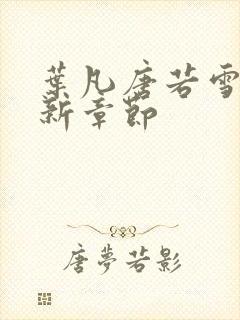 葉凡唐若雪
新章節
唐夢若影